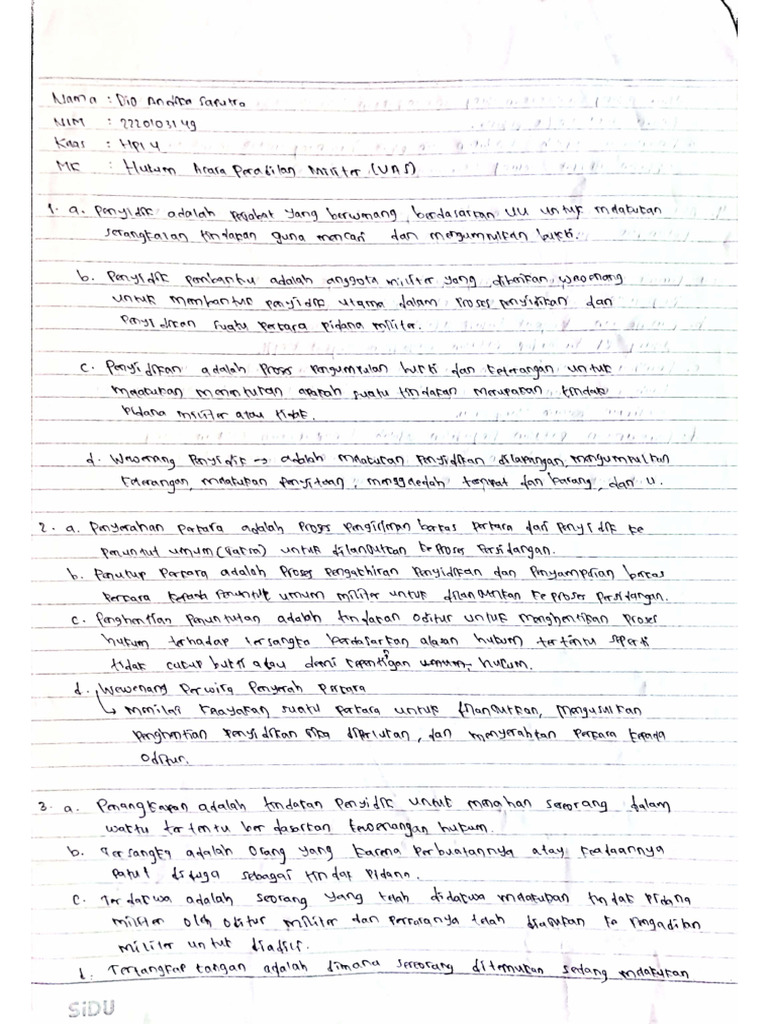 Nama : Dio Andika Saputra
NIM : 2220103149
Kelas : HPI 4
MK : Hukum Acara Peradilan Militer (UAS)
1. a. Penyidik adalah pejabat yang berwenang berdasarkan UU untuk melakukan
serangkaian tindakan guna mencari dan mengumpulkan bukti.
b. Penyidik pembantu adalah anggota militer yang diberikan wewenang
untuk membantu penyidik utama dalam proses penyidikan dan
penyidikan suatu perkara pidana militer.
c. Penyidikan adalah proses pengumpulan bukti dan keterangan untuk
melakukan menentukan apakah suatu tindakan merupakan tindak
pidana militer atau tidak.
d. Wewenang Penyidik → adalah melakukan penyidikan dilapangan, mengumpulkan
keterangan, melakukan penyitaan, menggledah tempat dan barang, dan u.
2. a. Penyerahan perkara adalah proses pengiriman berkas perkara dari penyidik ke
penuntut umum () untuk dilanjutkan ke proses persidangan.
b. Penutup perkara adalah proses pengakhiran penyidikan dan penyampaian berkas
perkara kepada penuntut umum militer untuk dilanjutkan ke proses persidangan.
c. Penghentian penuntutan adalah tindakan oditur untuk menghentikan proses
hukum terhadap tersangka berdasarkan alasan hukum tertentu seperti
tidak cukup bukti atau demi kepentigan umum hukum.
d. Wewenang Perwira Penyerah Perkara
↳ menilai kelayakan suatu perkara untuk dilanjutkan, mengusulkan
penghentian penyidikan jika diperlukan, dan menyerahkan perkara kepada
oditur.
3. a. Penangkapan adalah tindakan penyidik untuk menahan seseorang dalam
waktu tertentu berdasarkan kewenangan hukum.
b. Tersangka adalah orang yang karena perbuatannya atau keadaannya
patut diduga sebagai tindak pidana.
c. Terdakwa adalah seorang yang telah didakwa melakukan tindak pidana
militer oleh oditur militer dan perkaranya telah diajukan ke pengadilan
militer untuk diadili.
d. Tertangkap tangan adalah dimana seseorang ditemukan sedang melakukan
SiDU